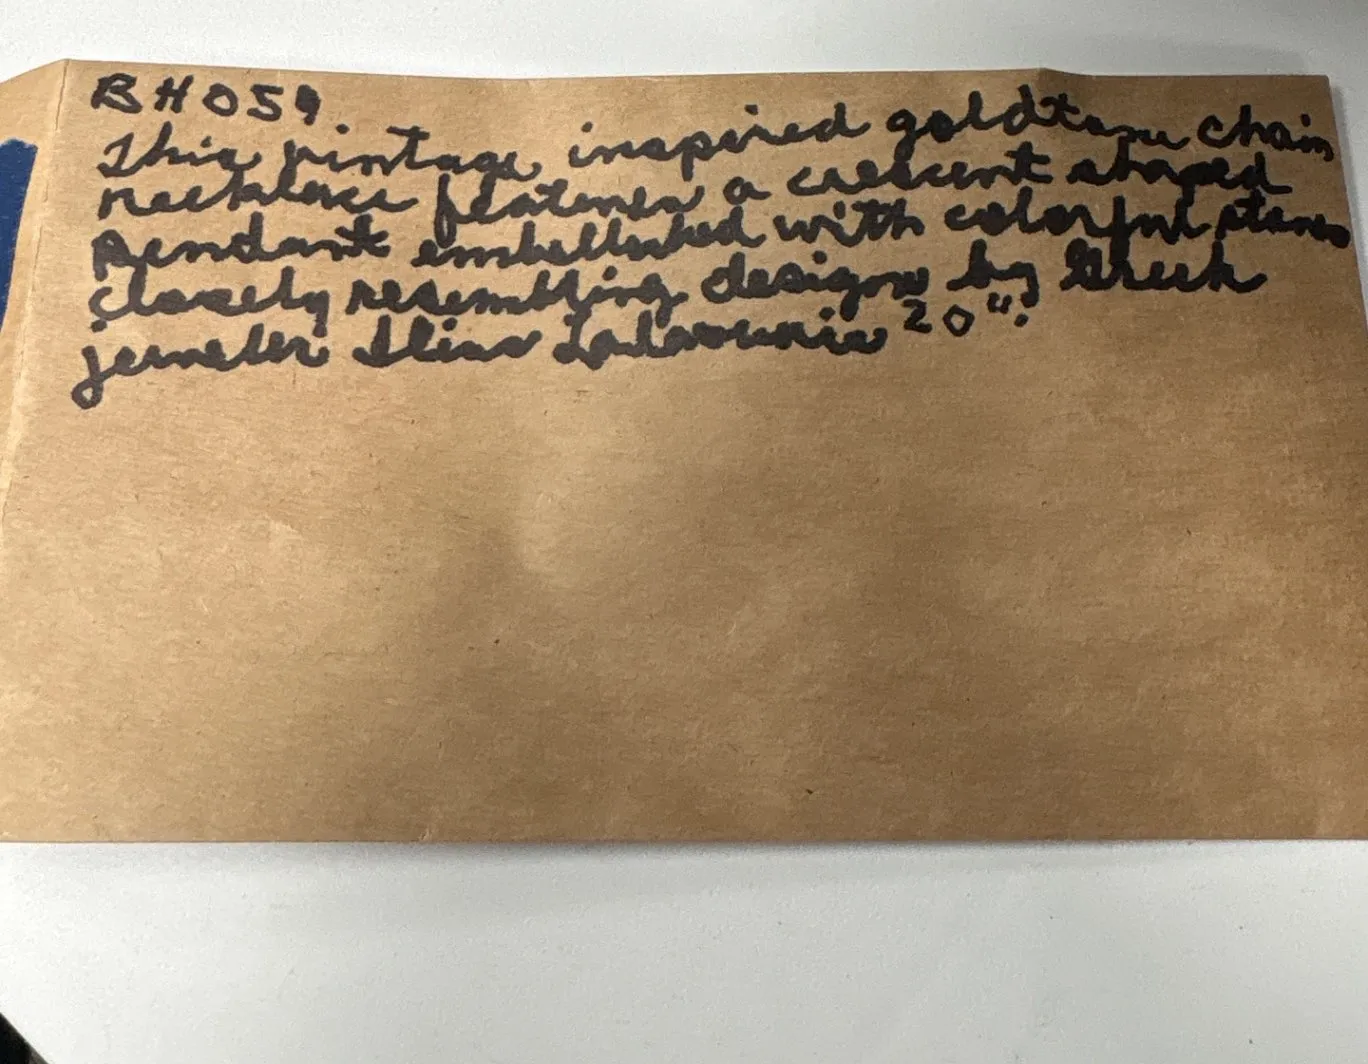 BH059.
This vintage inspired goldtone chain
necklace features a crescent shaped
Pendant embellished with colorful stones
closely resembling designs by Greek
jeweler Ilias Lalaounis 20".